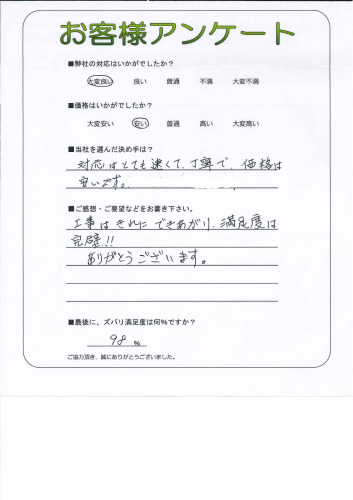 お客様アンケート
■弊社の対応はいかがでしたか?
大変良い 良い 普通 不満 大変不満
■価格はいかがでしたか?
大変安い 安い 普通 高い 大変高い
■当社を選んだ決め手は?
対応はとても速くて、丁寧で、価格は
安いです。
■ご感想・ご要望などをお書き下さい。
工事はきれにできあがり、満足度は
完璧!!
ありがとうございます。
■最後に、ズバリ満足度は何%ですか?
98 %
ご協力頂き、誠にありがとうございました。